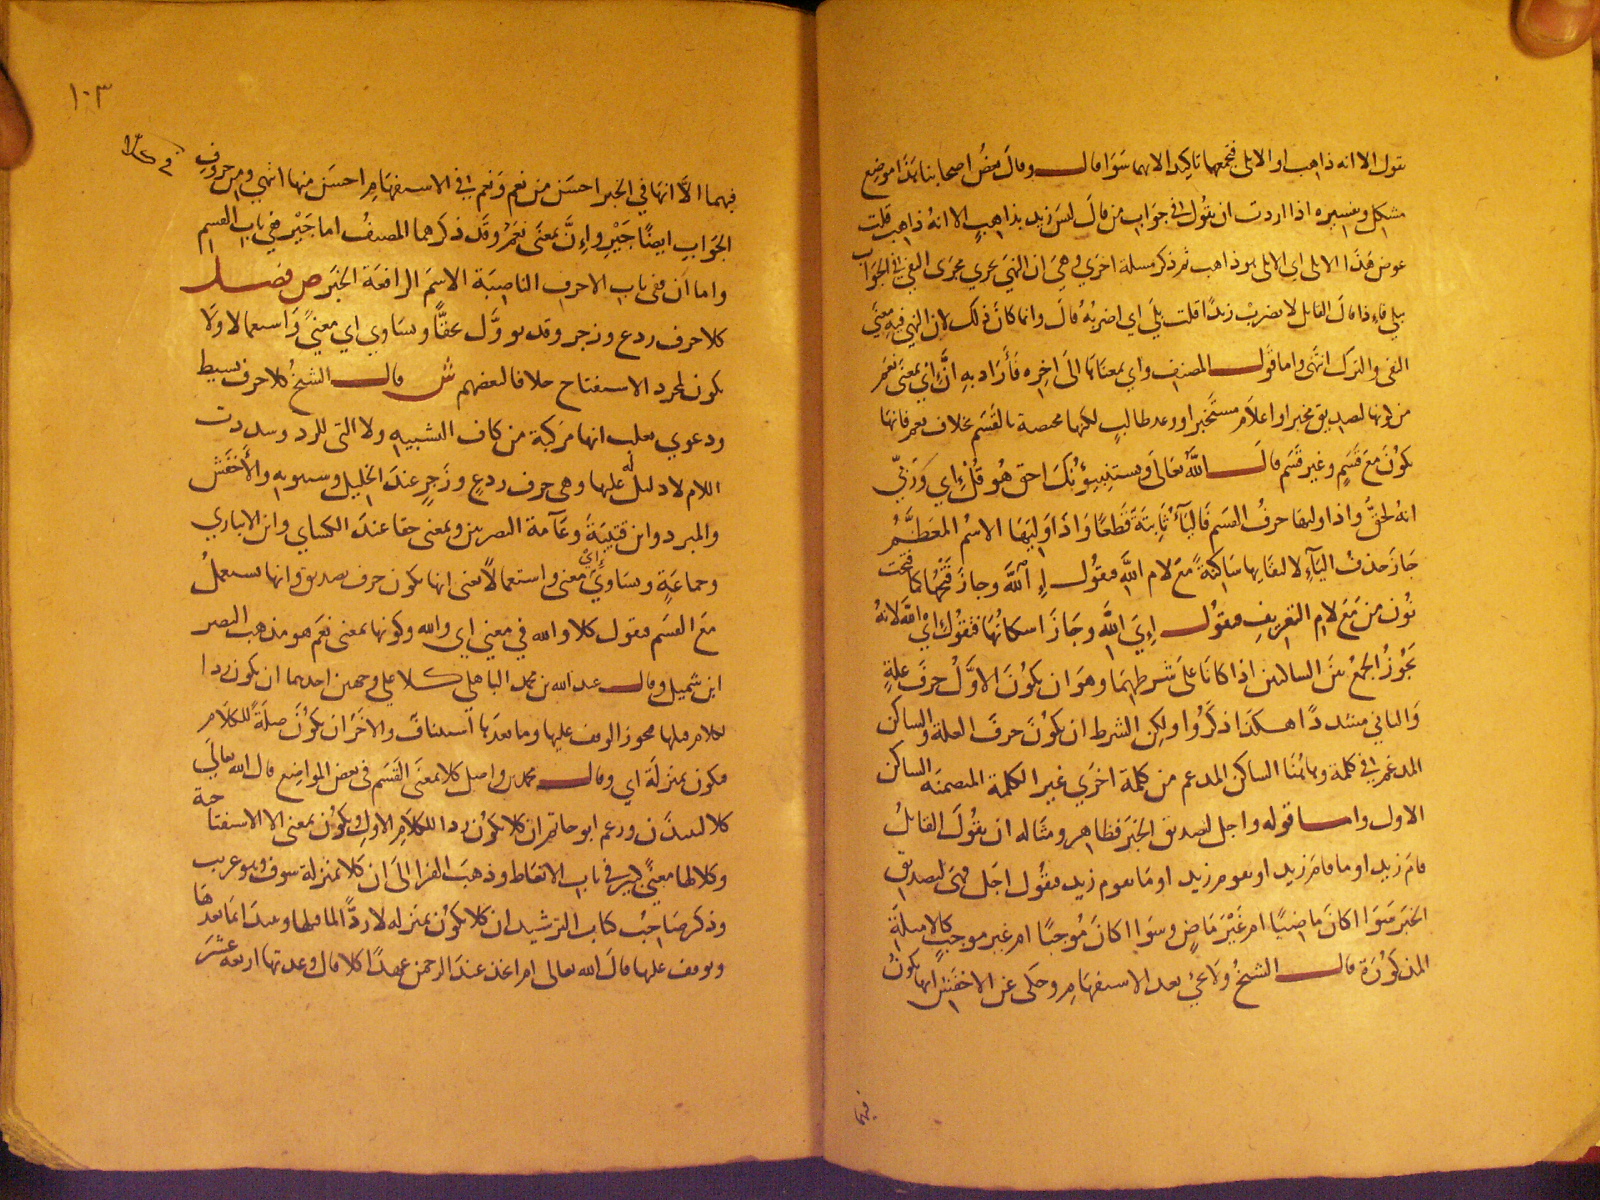 تقول الا انه ذاهب او الا بلى فتجمعها تاكيدا لانهما سوا قال وقال بعض اصحابنا هذا موضع
مشكل وتفسيره اذا اردت ان تقول في جواب من قال ليس زيد بذاهب الا انه ذاهب قلت
عوض هذا الا بلى اي الا بلى هو ذاهب ثم ذكر مسلة اخرى وهي ان النهي يجري مجرى النفي في الجواب
ببلى فاذا قال القايل لا تضرب زيدا قلت بلى اي اضربه قال وانما كان ذلك لان النهي فيه معنى
النفي والترك انتهى واما قول المصنف واي بمعناها الى اخره فاراد به ان اي بمعنى نعم
من كونها لتصديق مخبر او اعلام مستخبر او وعد طالب لكنها مختصة بالقسم بخلاف نعم فانها
تكون مع قسم وغير قسم قال الله تعالى ويستنبيؤنك احق هو قل اي وربي
انه لحق واذا وليها حرف القسم فالياء ثابتة قطعا واذا وليها الاسم المعظم
جاز حذف الياء لالتقايها ساكنة مع لام الله فتقول إ الله وجاز فتحها كما فتحت
نون من مع لام التعريف فتقول إي الله وجاز اسكانها فتقول اي الله لانه
يجوز الجمع بين الساكنين اذا كانا على شرطهما وهو ان يكون الاول حرف علة
والثاني مشددا هكذا ذكروا ولكن الشرط ان يكون حرف العلة والساكن
المدغم في كلمة وهاهنا الساكن المدغم من كلمة اخرى غير الكلمة المتضمنة الساكن
الاول واما قوله واجل لتصديق الخبر فظاهر ومثاله ان يقول القايل
قام زيد او ما قام زيد او يقوم زيد او ما يقوم زيد فتقول اجل فهي لتصديق
الخبر سوا اكان ماضيا ام غير ماض وسوا اكان موجبا ام غير موجب كالامثلة
المذكورة قال الشيخ ولا تجئ بعد الاستفهام وحكى عن الاخفش انها تكون
فيهما
١٠٣
في كلا
فيهما الا انها في الخبر احسن من نعم ونعم في الاستفهام احسن منها انتهى ومن حروف
الجواب ايضا جير وإن بمعنى نعم وقد ذكرهما المصنف اما جير ففي باب القسم
واما ان ففي باب الاحرف الناصبة الاسم الرافعة الخبر ص فصل
كلا حرف ردع وزجر وقد توول بحقا وتساوي اي معنى واستعمالا ولا
تكون لمجرد الاستفتاح خلافا لبعضهم ش قال الشيخ كلا حرف بسيط
ودعوي ثعلب انها مركبة من كاف التشبيه ولا التي للرد وشددت
اللام لا دليل له عليها وهي حرف ردع وزجر عند الخليل وسيبويه والأخفش
والمبرد وابن قتيبة وعامة البصريين وبمعنى حقا عند الكساي وابن الانباري
وجماعة وتساوي إي معنى واستعمالا يعني انها تكون حرف تصديق وانها تستعمل
مع القسم فتقول كلا والله في معنى اي والله وكونها بمعنى نعم هو مذهب النضر
ابن شميل وقال عبد الله بن محمد الباهلي كلا على وجهين احدهما ان تكون ردا
لكلام قبلها فيجوز الوقف عليها وما بعدها استيناف والاخر ان تكون صلة للكلام
فتكون بمنزلة اي وقال محمد بن واصل كلا بمعنى القسم في بعض المواضع قال الله تعالى
كلا لينبذن وزعم ابو حاتم ان كلا تكون ردا للكلام الاول وتكون بمعنى الا الاستفتاحية
وكلا لها معنى في باب الاتعاظ وذهب الفرا الى ان كلا بمنزلة سوف وهو غريب
وذكر صاحب كتاب الترشيد ان كلا تكون بمنزلة لا ردا لما قبلها ويبتدا بما بعدها
ويوقف عليها قال الله تعالى ام اتخذ عند الرحمن عهدا كلا قال وعدتها اربعة عشر